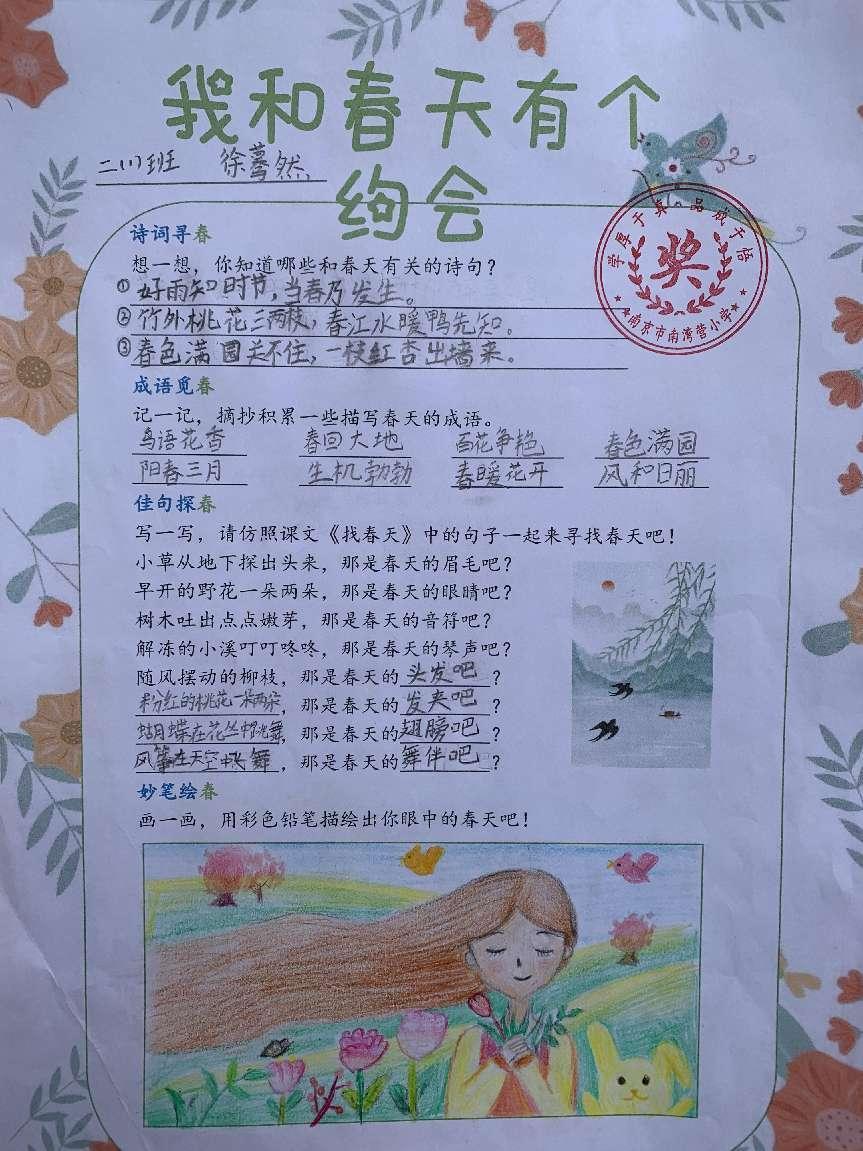 我和春天有个
约会
二(1)班 徐蓦然
诗词寻春
想一想，你知道哪些和春天有关的诗句？
①好雨知时节，当春乃发生。
②竹外桃花三两枝，春江水暖鸭先知。
③春色满园关不住，一枝红杏出墙来。
学厚于真 品成于悟
奖
南京市南湾营小学
成语觅春
记一记，摘抄积累一些描写春天的成语。
鸟语花香 春回大地 百花争艳 春色满园
阳春三月 生机勃勃 春暖花开 风和日丽
佳句探春
写一写，请仿照课文《找春天》中的句子一起来寻找春天吧！
小草从地下探出头来，那是春天的眉毛吧？
早开的野花一朵两朵，那是春天的眼睛吧？
树木吐出点点嫩芽，那是春天的音符吧？
解冻的小溪叮叮咚咚，那是春天的琴声吧？
随风摆动的柳枝，那是春天的头发吧？
粉红的桃花一朵两朵，那是春天的发夹吧？
蝴蝶在花丛中飞舞，那是春天的翅膀吧？
风筝在天空中飞舞，那是春天的舞伴吧？
妙笔绘春
画一画，用彩色铅笔描绘出你眼中的春天吧！